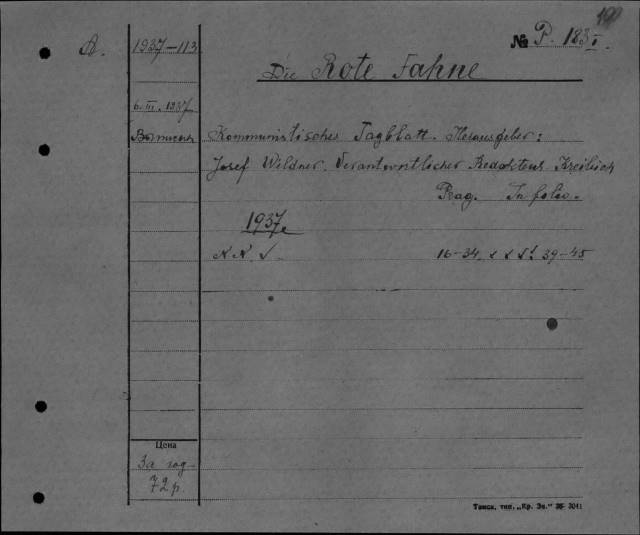 190
A. 1937-113 № P. 183/I.
Die Rote Fahne
6.III.1937
Kommunistisches Tagblatt. Herausgeber:
Josef Weldner. Verantwortlicher Redakteur Kreibich
Prag. In folio.
1937
NN. 16-34. 39-45
Цена
За год
72 р.
Томск, тип. „Кр. Зн.“